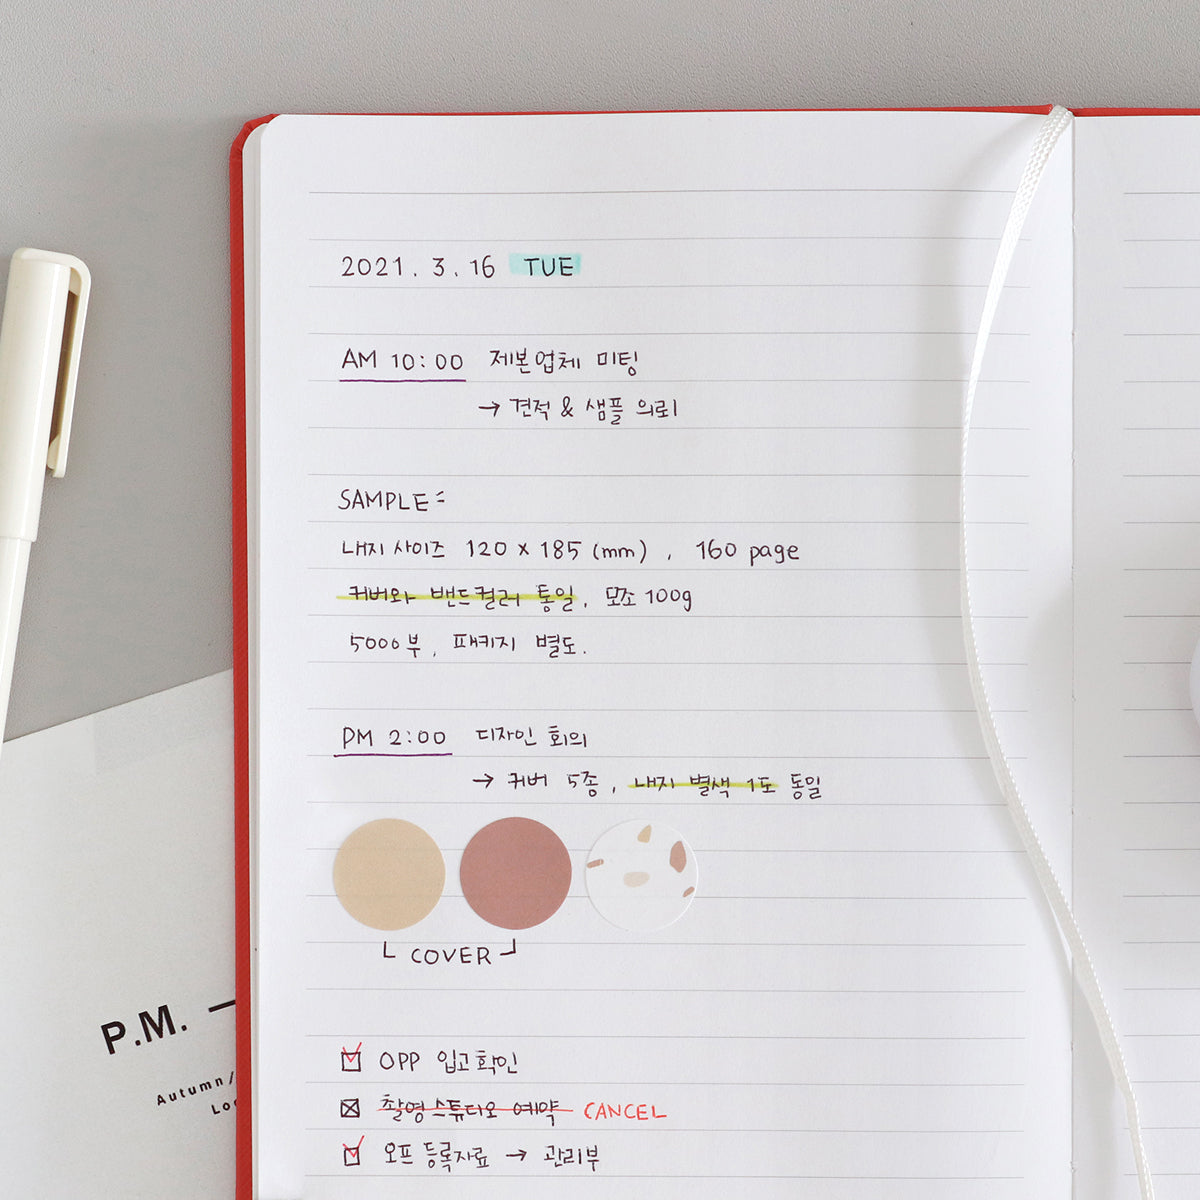 2021. 3. 16 TUE
AM 10:00 제본업체 미팅
→ 견적 & 샘플 의뢰
SAMPLE:
내지 사이즈 120 x 185 (mm) , 160 page
커버와 밴드컬러 통일, 모조 100g
5000부, 패키지 별도.
PM 2:00 디자인 회의
→ 커버 5종, 내지 별색 1도 통일
COVER
OPP 입고확인
촬영스튜디오 예약 CANCEL
오프 등록자료 → 관리부
P.M. —
Autumn/